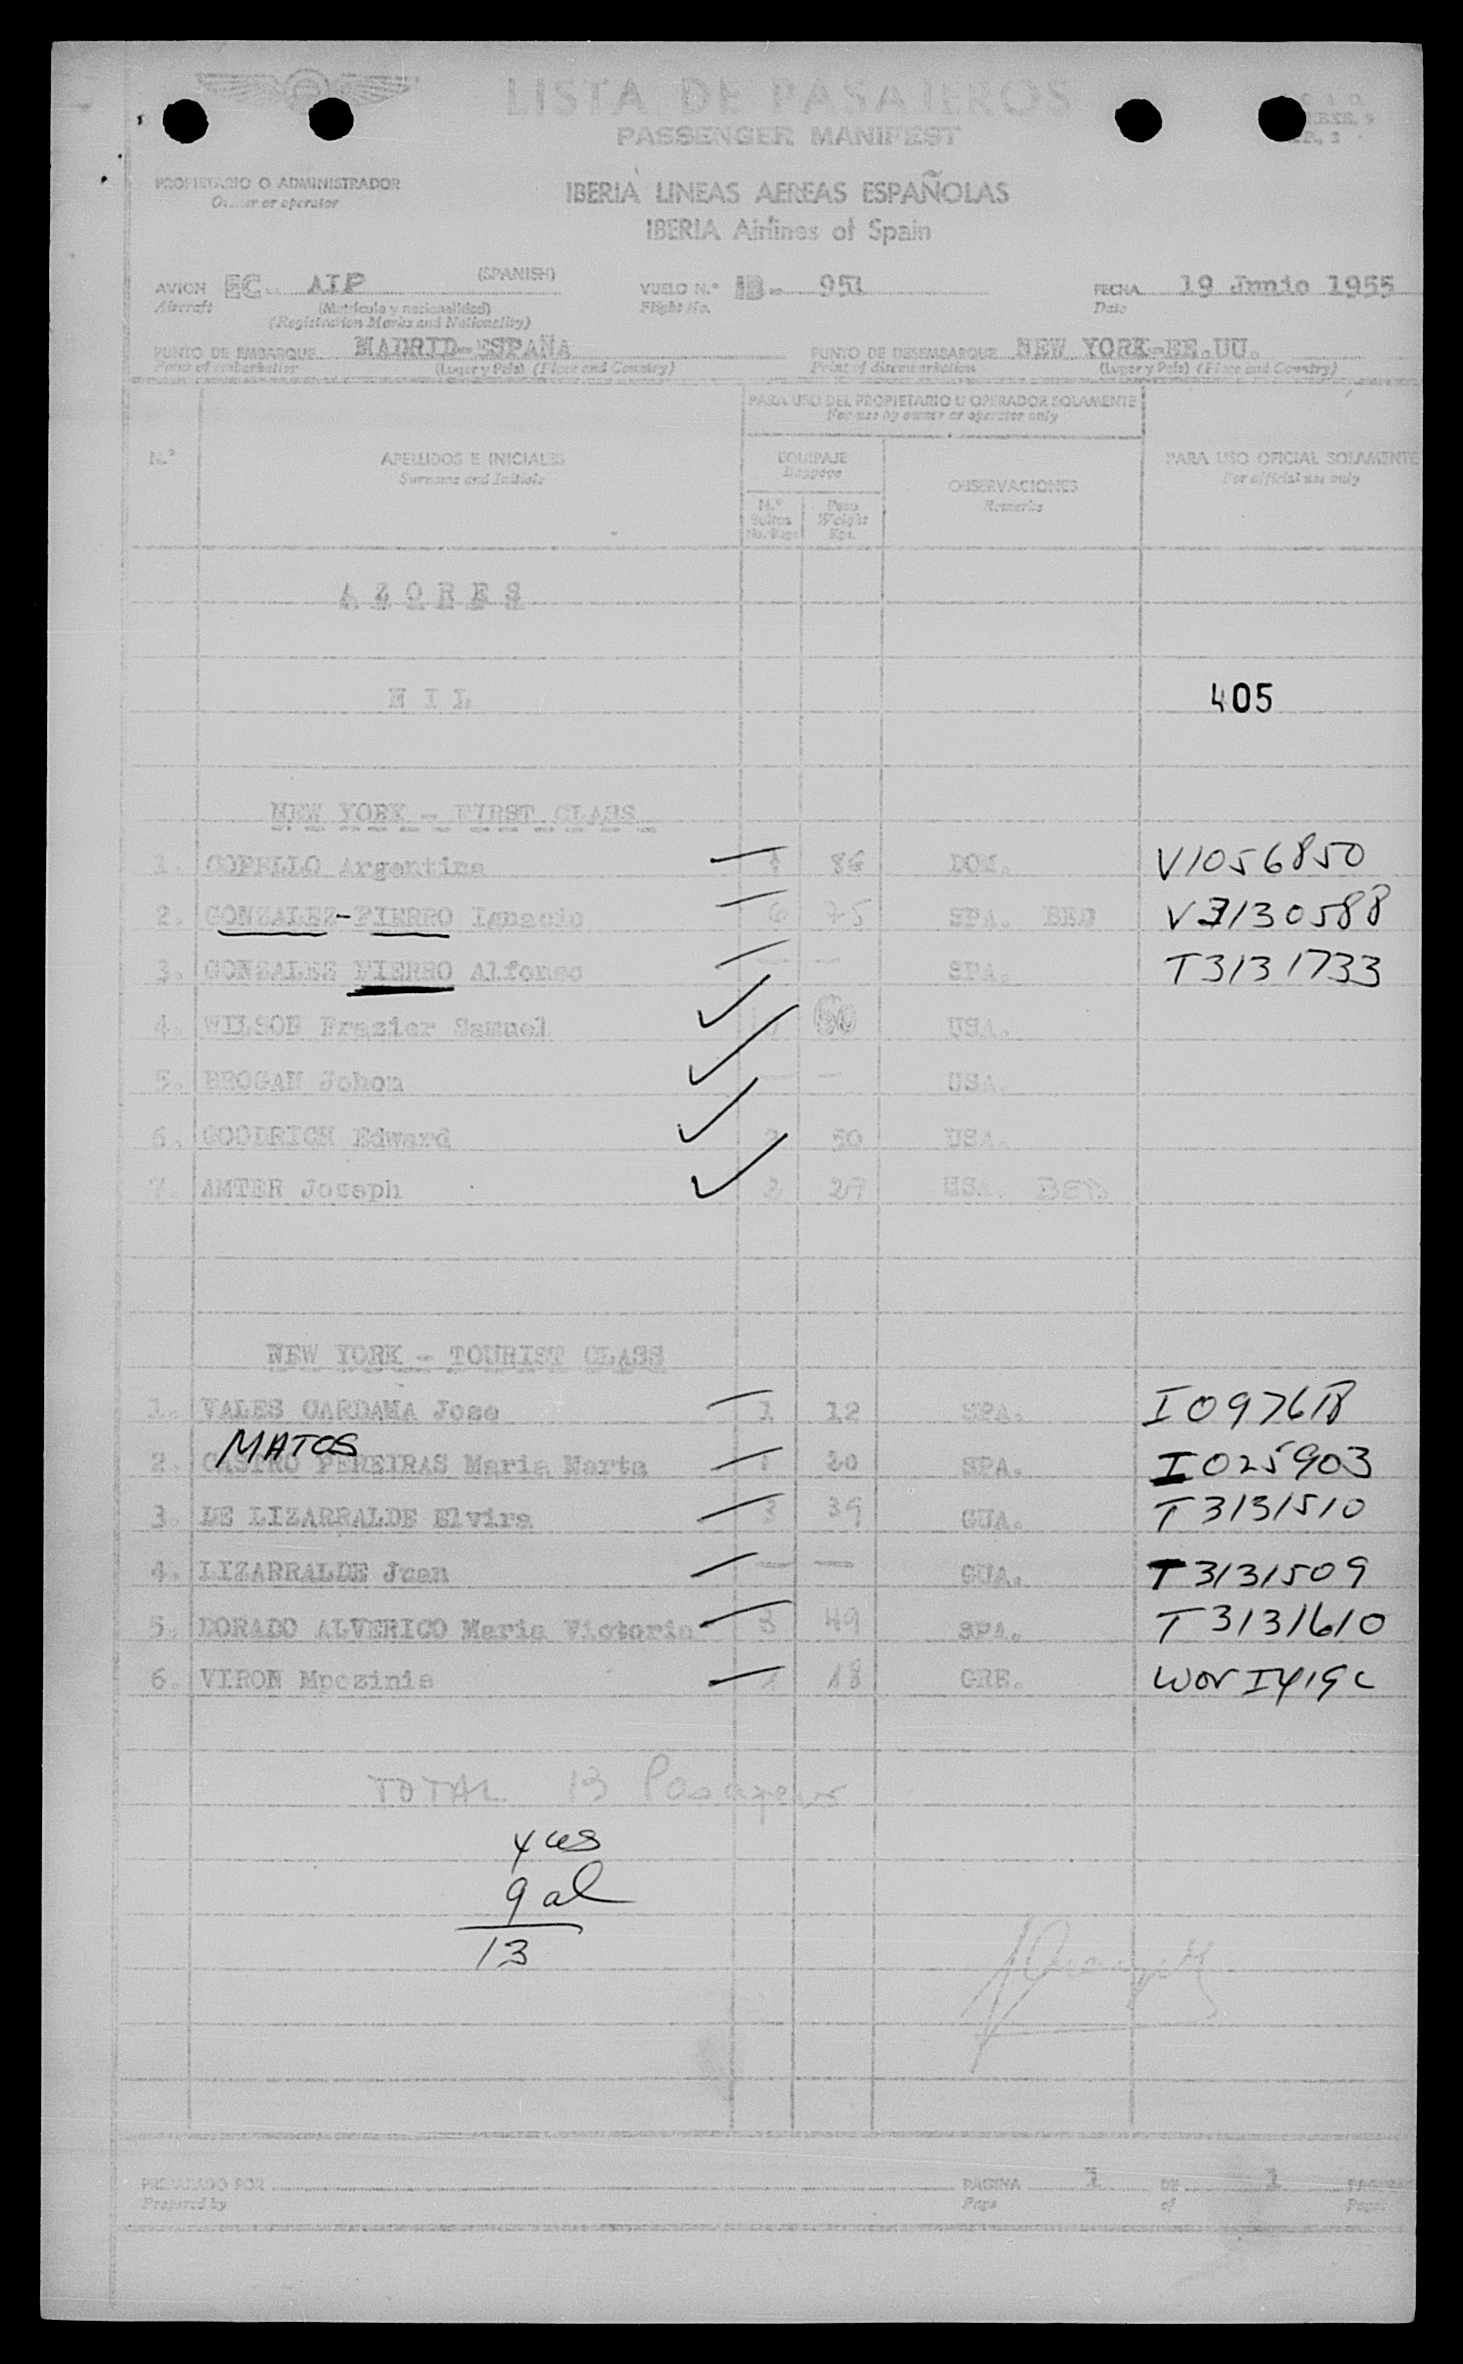 LISTA DE PASAJEROS
PASSENGER MANIFEST
PROPIETARIO O ADMINISTRADOR
Owner or operator
IBERIA LINEAS AEREAS ESPAÑOLAS
IBERIA Airlines of Spain
AVION EC- AIP (SPANISH) VUELO N.º IB- 951 FECHA 19 Junio 1955
Aircraft (Matrícula y nacionalidad) Flight No. Date
(Registration Marks and Nationality)
PUNTO DE EMBARQUE MADRID-ESPAÑA PUNTO DE DESEMBARQUE NEW YORK-EE.UU.
Point of embarkation (Lugar y País) (Place and Country) Point of disembarkation (Lugar y País) (Place and Country)
PARA USO DEL PROPIETARIO U OPERADOR SOLAMENTE
For use by owner or operator only
N.º APELLIDOS E INICIALES EQUIPAJE OBSERVACIONES PARA USO OFICIAL SOLAMENTE
Surname and Initials Baggage Remarks For official use only
N.º Bultos Peso
No. Bags Weight Kgs.
AZORES
NIL 405
NEW YORK - FIRST CLASS
1. COPELLO Argentina 86 DOM. V1056850
2. GONZALEZ-FIERRO Ignacio 6 75 SPA. BED V3130588
3. GONZALEZ FIERRO Alfonso — — SPA. T3131733
4. WILSON Frazier Samuel 60 USA.
5. BROGAN Johom — — USA.
6. GOODRICH Edward 2 50 USA.
7. AMTER Joseph 2 27 USA. BED
NEW YORK - TOURIST CLASS
1. VALES CARDAMA Jose 1 12 SPA. I097618
MATOS
2. CASTRO PEREIRAS Maria Marta 1 20 SPA. I025903
3. DE LIZARRALDE Elvira 3 39 GUA. T3131510
4. LIZARRALDE Juan — — GUA. T3131509
5. DORADO ALVERICO Maria Victoria 3 49 SPA. T3131610
6. VIRON Mpozinia 1 18 GRE.
TOTAL 13 Pasajeros
4 us
9 al
13
PREPARADO POR PAGINA 1 DE 1 PAGINAS
Prepared by Page of Pages